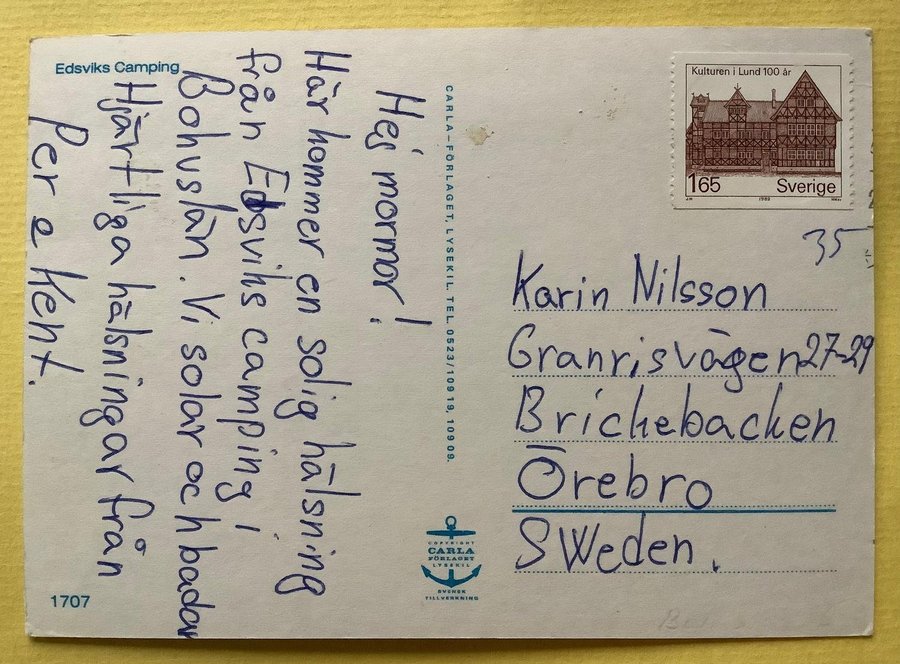 Edsviks Camping
Hej mormor!
Här kommer en solig hälsning
från Edsviks camping i
Bohuslän. Vi solar och badar
Hjärtliga hälsningar från
Per e Kent.
1707
CARLA-FÖRLAGET, LYSEKIL. TEL. 0523/109 19, 109 09.
COPYRIGHT
CARLA
FÖRLAGET
LYSEKIL
SVENSK
TILLVERKNING
Kulturen i Lund 100 år
165 Sverige
1982
35
Karin Nilsson
Granrisvägen 27-29
Brickebacken
Örebro
SWeden.